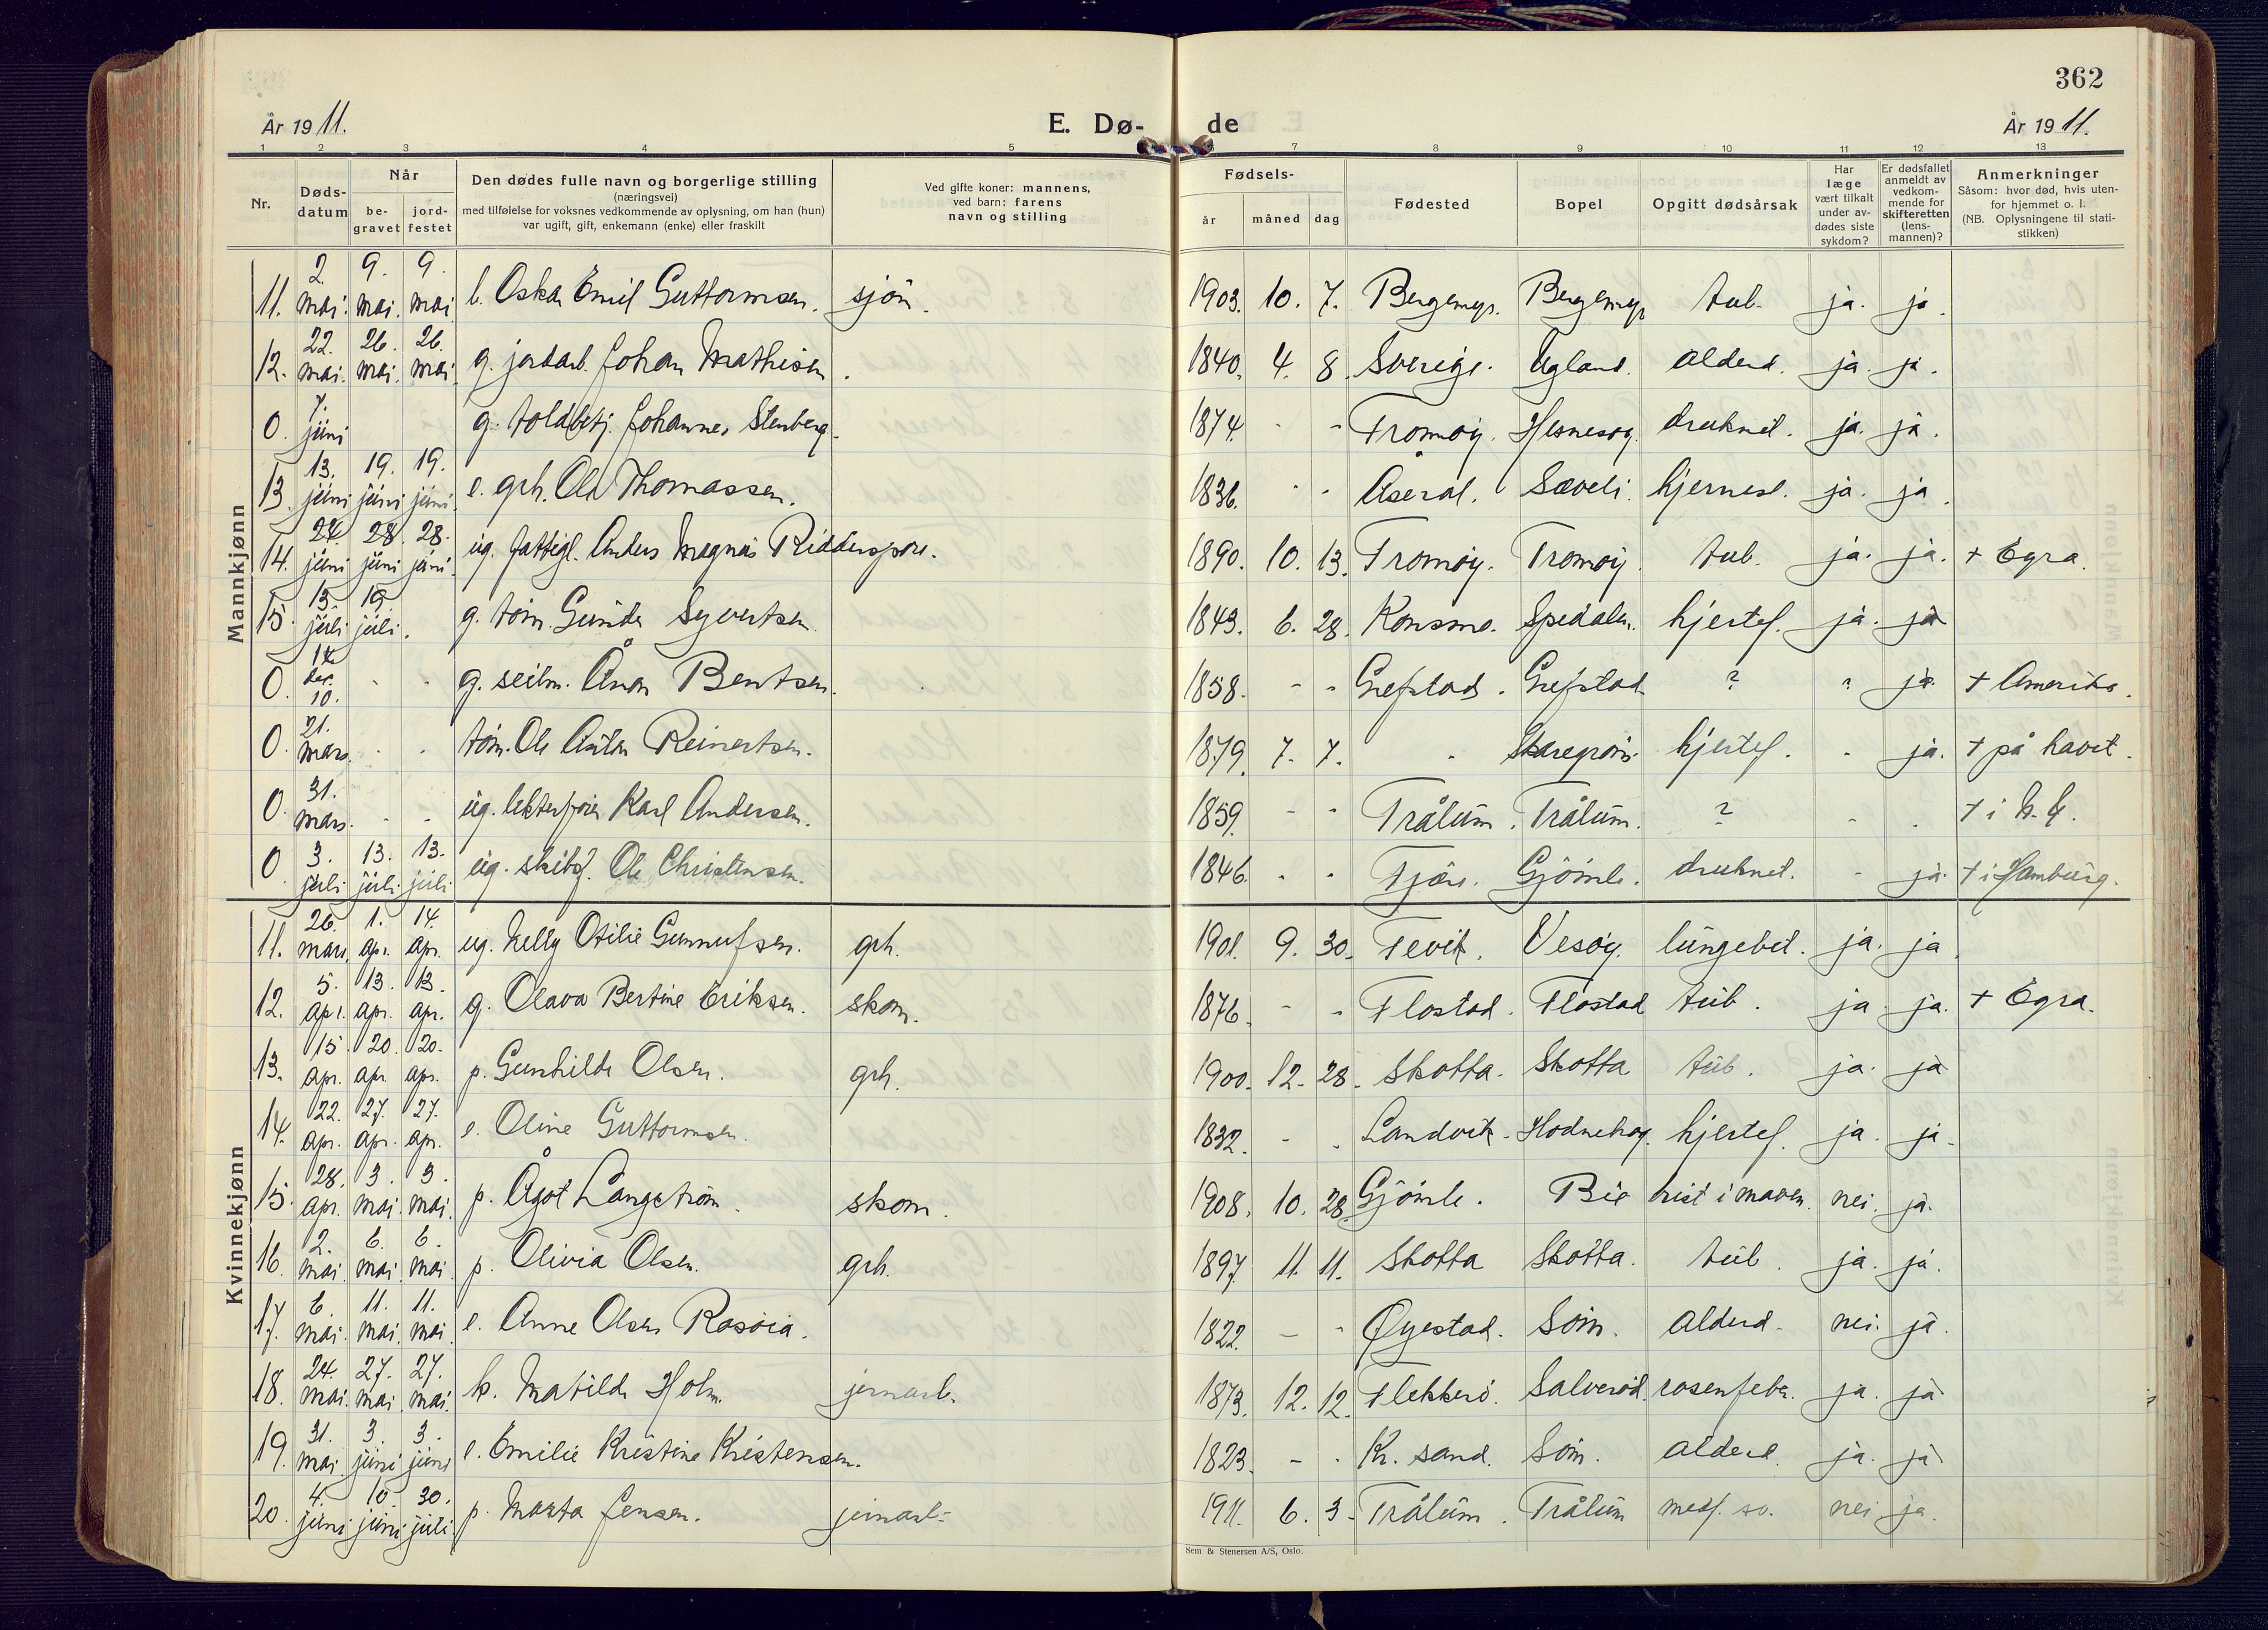 362
År 1911. E. Dø- de År 1911.
1 2 3 4 5 6 7 8 9 10 11 12 13
Nr. Døds-datum Når be-gravet jord-festet Den dødes fulle navn og borgerlige stilling (næringsvei) med tilføielse for voksnes vedkommende av oplysning, om han (hun) var ugift, gift, enkemann (enke) eller fraskilt Ved gifte koner: mannens, ved barn: farens navn og stilling Fødsels- år måned dag Fødested Bopel Opgitt dødsårsak Har læge vært tilkalt under av-dødes siste sykdom? Er dødsfallet anmeldt av vedkom-mende for skifteretten (lens-mannen)? Anmerkninger Såsom: hvor død, hvis uten-for hjemmet o. l. (NB. Oplysningene til stati-stikken)
Mannkjønn
11. 2. mai. 9. mai. 9. mai Oskar Emil Guttormsen. sjøm. 1903. 10. 7. Bergemyr. Bergemyr tub. ja. ja.
12. 22. mai. 26. mai. 26. mai. g. jordarb. Johan Mathisen. 1840. 4. 8. Sverige. Ugland. alderd. ja. ja.
0. 7. juni g. toldbetj. Johannes Stenberg. 1874. - - Tromøy. Hesnesøy. druknet. ja. ja.
13. 13. juni 19. juni 19. juni. e. grh. Ole Thomassen. 1836. - - Åseral. Sæveli. hjernesl. ja. ja.
14. 24. juni 28. juni 28. juni. ug. fattigl. Anders Magnus Ridderspore. 1890. 10. 13. Tromøy. Tromøy. tub. ja. ja. + Egra.
15. 13. juli 19. juli. g. tøm. Gunder Syvertsen. 1843. 6. 28. Konsmo. Spedalen. hjertef. ja. ja
0. 14 des. 10. - - g. seilm. Ånon Bentsen. 1858. - - Grefstad. Grefstad ? " ja. + Amerika.
0. 21. mars. - - tøm. Ole Anton Reinertsen. 1879. 7. 7. - hjertef. - ja. + på havet.
0. 31. mars. - - ug. lekterfører Karl Andersen. 1859. - - Trålum. Trålum. ? - - + i N.Y.
0. 3. juli 13. juli 13. juli ug. skibsf. Ole Christensen. 1846. - - Fjære. Gjømle. druknet. - ja. + i Hamburg.
Kvinnekjønn
11. 26. mars. 1. apr. 14. apr. ug. Nelly Otilie Gunnufsen. grh. 1901. 9. 30. Tveit. Vesøy. lungebet. ja. ja.
12. 5. apr. 13. apr. 13. apr. g. Olava Bertine Eriksen. skom. 1876. - - Flostad. Flostad tub. ja ja. + Egra.
13. 15. apr. 20. apr. 20. apr. p. Gunhilde Olsen. grh. 1900. 12. 28. Skotta. Skotta tub. ja. ja
14. 22. apr. 27. apr. 27. apr. e. Oline Guttormsen. 1832. - - Landvik. hjertef. ja. ja.
15. 28. apr. 3. mai. 3. mai. p. Ågot Langstrøm. skom. 1908. 10. 28 Gjømle. Bie i maven. nei. ja.
16. 2. mai. 6. mai. 6. mai. p. Olivia Olsen. grh. 1897. 11. 11. Skotta Skotta. tub. ja. ja.
17. 6. mai. 11. mai. 11. mai. e. Anne Olsen Rosøia. 1822. - - Øyestad. Søm. alderd. nei. ja.
18. 24. mai. 27. mai. 27. mai. k. Matilde Holm. jernarb. 1873. 12. 12. Flekkerø. Salverød. rosenfeber. ja. ja
19. 31. mai. 3. juni 3. juni e. Emilie Kristine Kristensen. 1823. - - Kr. sand. Søm. alderd. ja. ja
20. 4. juni 10. juni 30. juli p. Marta Jensen. jernarb. 1911. 6. 3. Trålum. Trålum medf. sv. nei ja.
Sem & Stenersen A/S, Oslo.